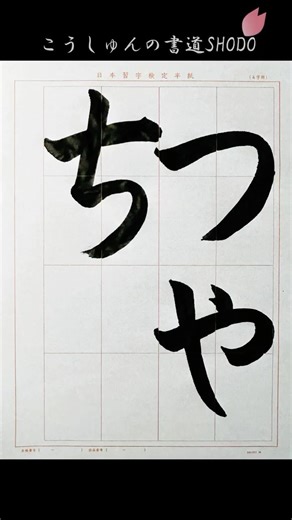 こうしゅんの書道SHODO
日本習字検定半紙
つや
ち